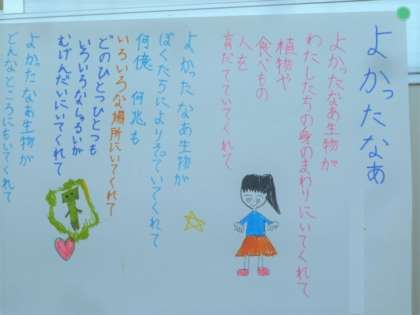 よかったなあ
よかったなあ生物が
わたしたちの身のまわりにいてくれて
植物や
食べもの
人を
育だてていてくれて
よかったなあ生物が
ぼくたちによりそっていてくれて
何億 何兆も
いろいろな場所にいてくれて
どのひとつひとつも
いろいろなしるいが
むげんだいにいてくれて
よかったなあ生物が
どんなところにもいてくれて